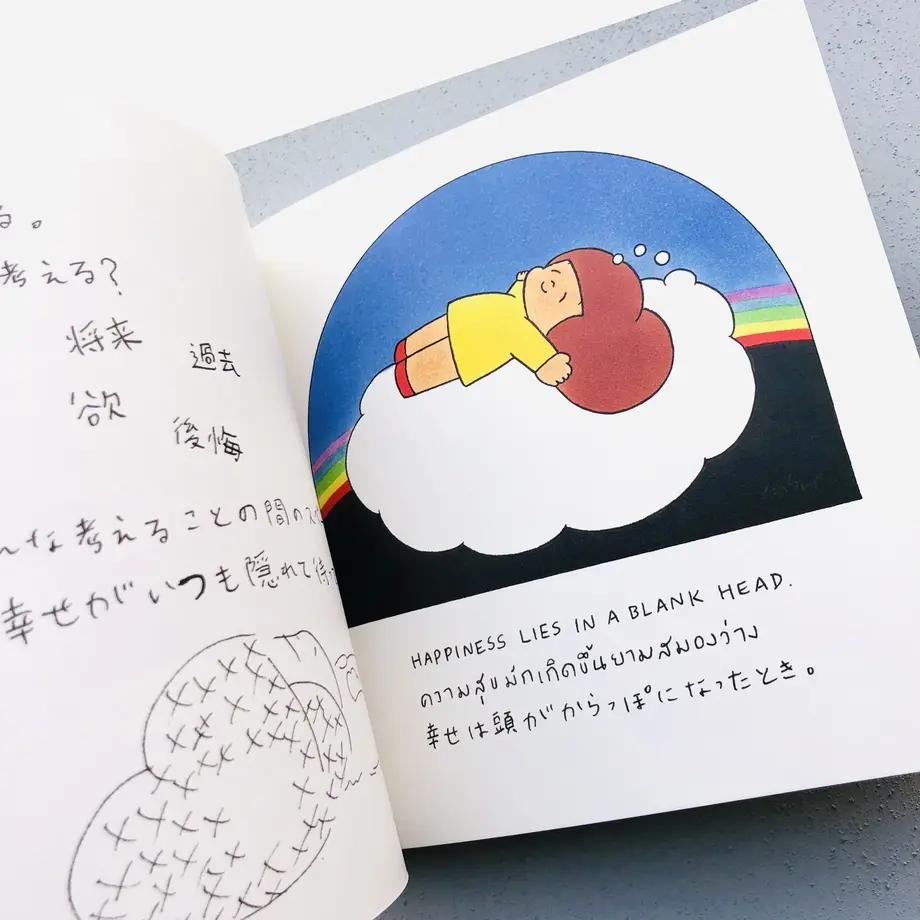 る。
考える?
将来
過去
欲
後悔
んな考えることの間のス
幸せがいつも隠れて待っ
HAPPINESS LIES IN A BLANK HEAD.
ความสุขมักเกิดขึ้นยามสมองว่าง
幸せは頭がからっぽになったとき。